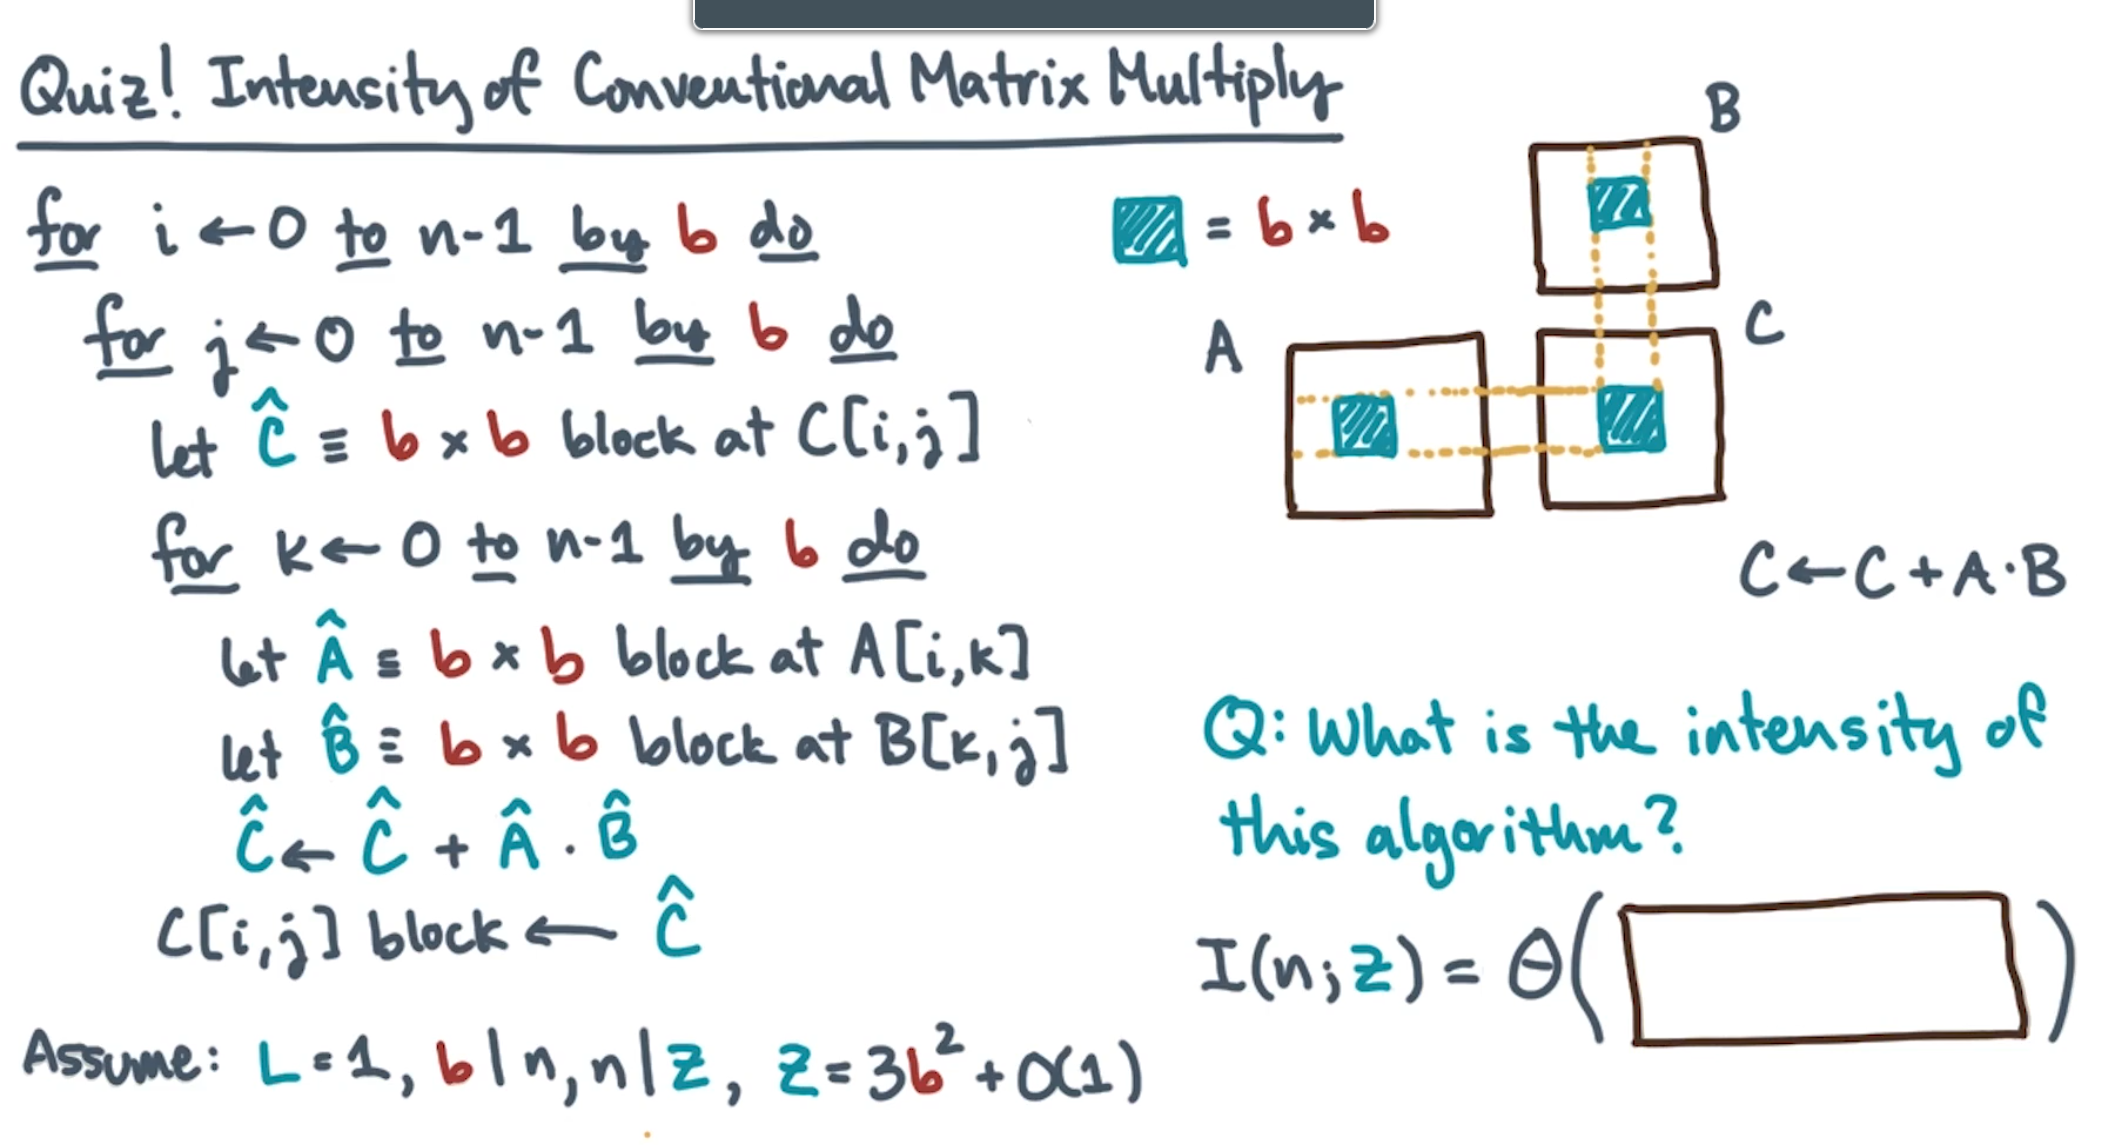 Quiz! Intensity of Conventional Matrix Multiply
for i ← 0 to n-1 by b do
for j ← 0 to n-1 by b do
let Ĉ ≡ b × b block at C[i,j]
for k ← 0 to n-1 by b do
let Â ≡ b × b block at A[i,k]
let B̂ ≡ b × b block at B[k,j]
Ĉ ← Ĉ + Â · B̂
C[i,j] block ← Ĉ
Assume: L = 1, b | n, n | Z, Z = 3b² + O(1)
= b × b
B
A
C
C ← C + A · B
Q: What is the intensity of
this algorithm?
I(n; Z) = Θ( )